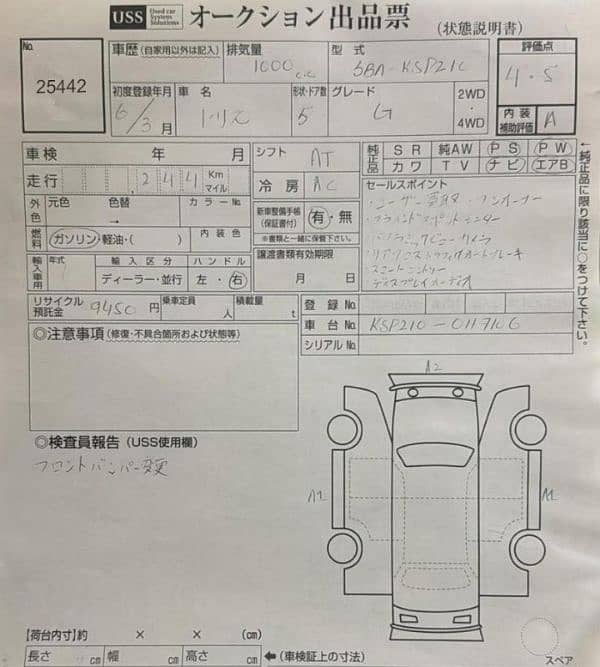 USS Used car System Solutions オークション出品票
(状態説明書)
No. 25442
車歴 (自家用以外は記入)
排気量 1000 c.c
型式 5BA-KSP210
評価点 4.5
初度登録年月 6/3月
車名
形状・ドア数 5
グレード G
2WD・4WD
内装補助評価 A
車検 年 月
シフト AT
純正品 SR 純AW PS PW
カワ TV ナビ エアB
走行 244 Km マイル
冷房 AC
セールスポイント
・ユーザー買取・ワンオーナー
・ブラインドスポットモニター
・パノラミックビューカメラ
・スマートエントリー
・ディスプレイオーディオ
外色 元色 色替 → カラーNo.
新車整備手帳(保証書付) 有・無
※書類と一緒に保管下さい。
燃料 ガソリン・軽油・( ) 内装色
輸入車用 年式 輸入区分 ハンドル
ディーラー・並行 左・右
譲渡書類有効期限
月 日
リサイクル預託金 9450円
乗車定員 人
積載量 t
登録No.
車台No. KSP210-0117106
シリアルNo.
←純正品に限り該当に○をつけて下さい。
◎注意事項 (修復・不具合箇所および状態等)
◎検査員報告 (USS使用欄)
フロントバンパー変更
A2
A1
A1
【荷台内寸】約 × × (cm)
長さ cm 幅 cm 高さ cm ←(車検証上の寸法)
スペア